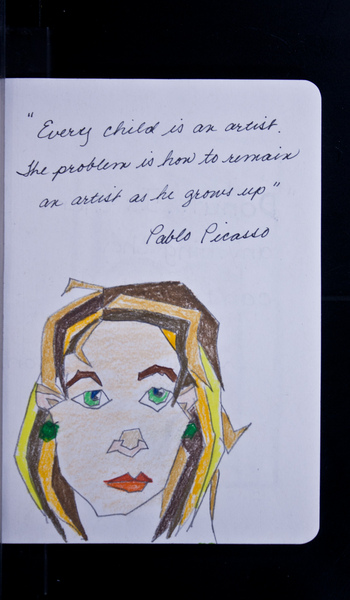 "Every child is an artist.
The problem is how to remain
an artist as he grows up"
Pablo Picasso